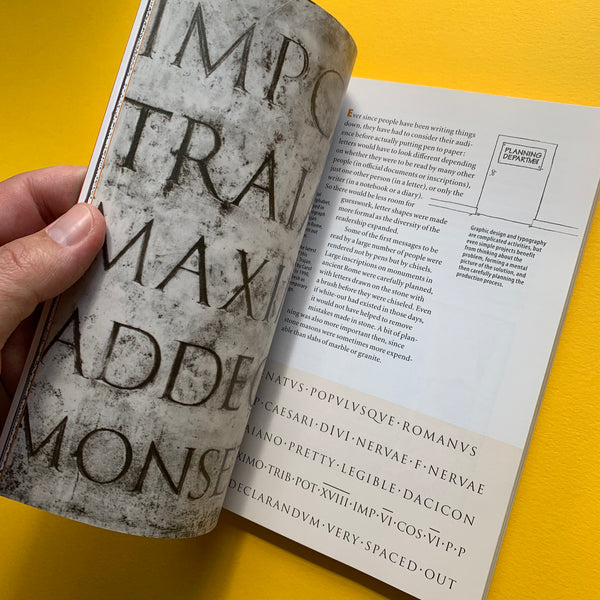 IMPO
TRAI
MAXI
ADDE
MONSE
Ever since people have been writing things
down, they have had to consider their audi-
ence before actually putting pen to paper:
letters would have to look different depending
on whether they were to be read by many other
people (in official documents or inscriptions),
just one other person (in a letter), or only the
writer (in a notebook or a diary).
So there would be less room for
guesswork, letter shapes were made
more formal as the diversity of the
readership expanded.
Some of the first messages to be
read by a large number of people were
rendered not by pens but by chisels.
Large inscriptions on monuments in
ancient Rome were carefully planned,
with letters drawn on the stone with
a brush before they were chiseled. Even
if white-out had existed in those days,
it would not have helped to remove
mistakes made in stone. A bit of plan-
ning was also more important then, since
stone masons were sometimes more expend-
able than slabs of marble or granite.
PLANNING
DEPARTMEN
Graphic design and typography
are complicated activities, but
even simple projects benefit
from thinking about the
problem, forming a mental
picture of the solution, and
then carefully planning the
production process.
NATVS·POPVLVSQVE·ROMANVS
P·CAESARI·DIVI·NERVAE·F·NERVAE
AIANO·PRETTY·LEGIBLE·DACICON
XIMO·TRIB·POT·XVIII·IMP·VI·COS·VI·P·P
DECLARANDVM·VERY·SPACED·OUT